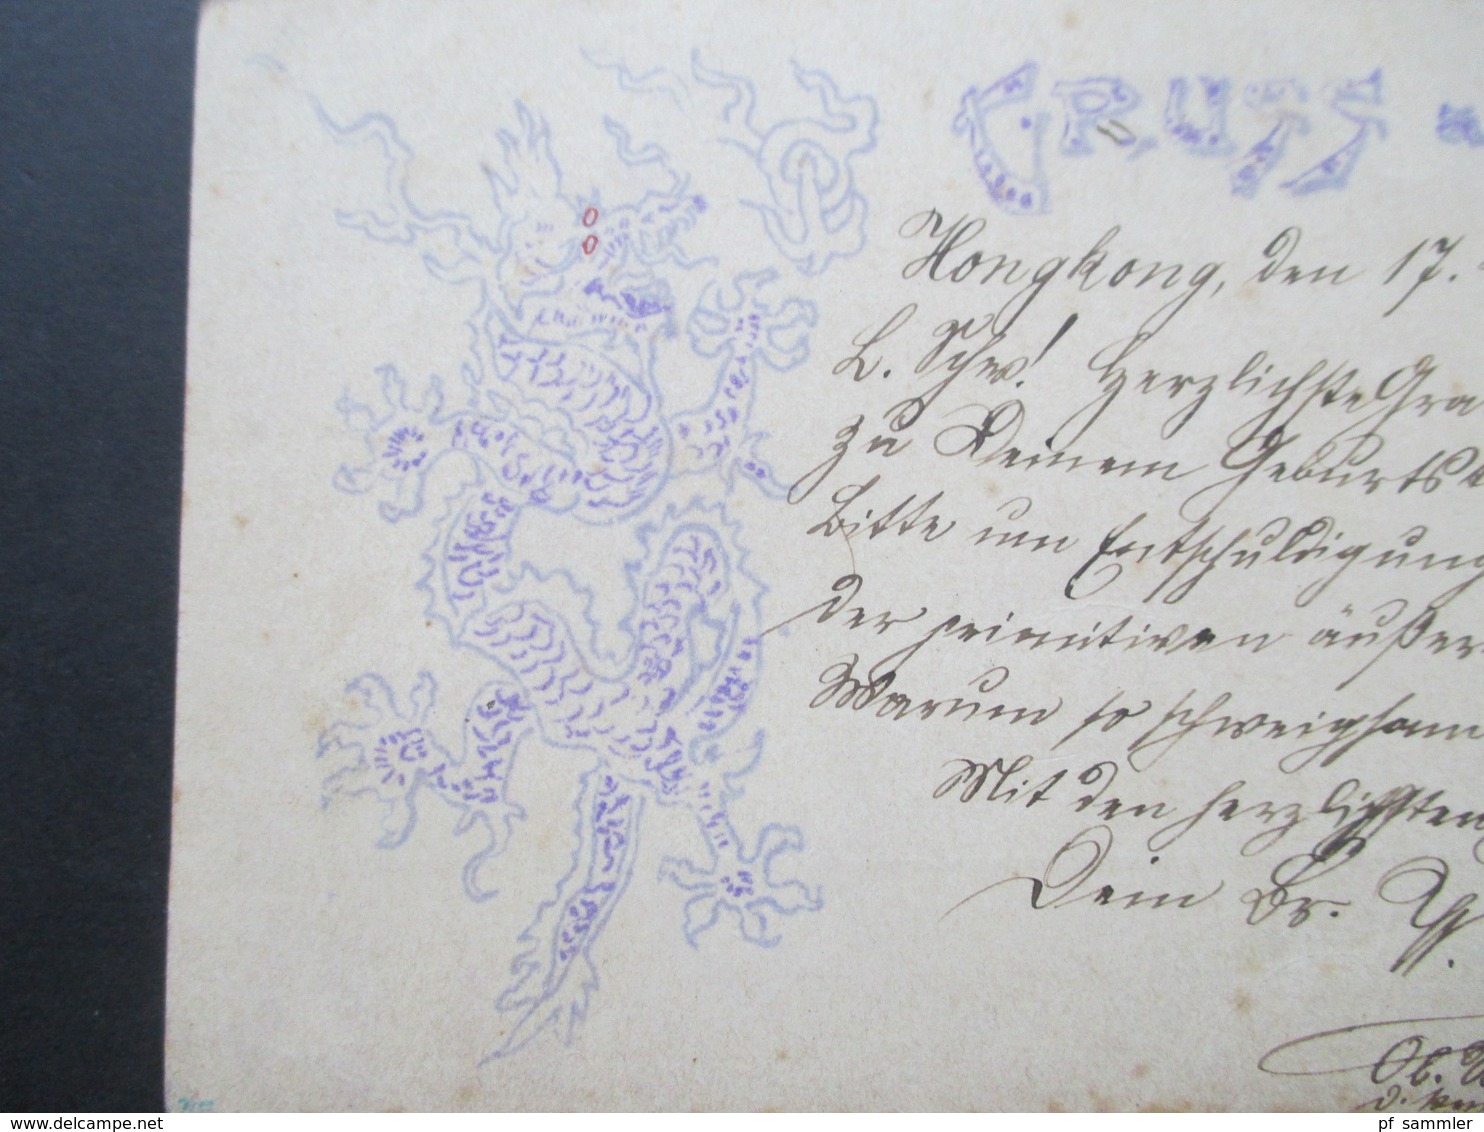 GRUSS
Hongkong, den 17.
L. Schw! Herzlichste Gra
zu Deinem Geburts
Bitte um Entschuldigung
der primitiven äußer
Warum so schweigsam
Mit den herzlichsten
Dein Br.
Ob.
d.
© delcampe.net
pf_sammler